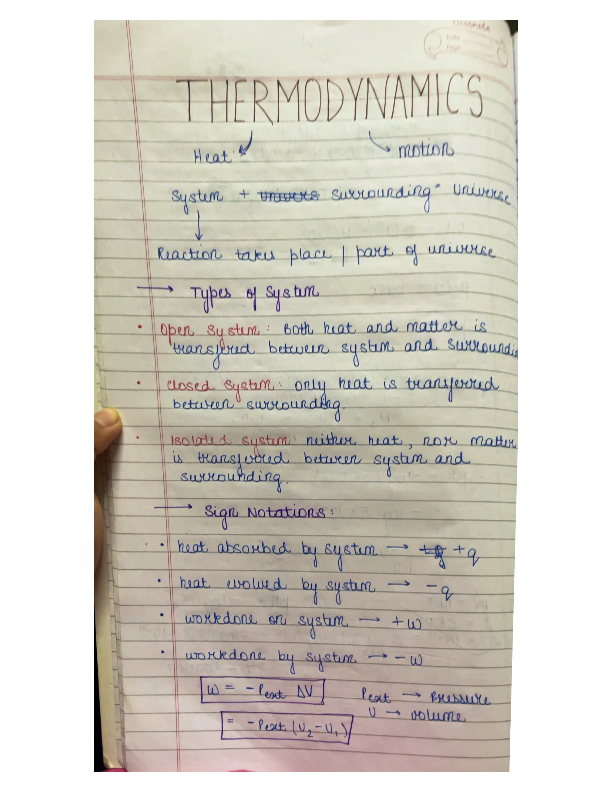 classmate
Date
Page
THERMODYNAMICS
Heat motion
System + surrounding = Universe
Reaction takes place / part of universe
→ Types of System
• Open System: Both heat and matter is
transfered between system and surroundin
• closed system: only heat is transferred
between surrounding.
• Isolated system: neither heat, nor matter
is transferred between system and
surrounding.
→ Sign Notations:
• heat absorbed by system → +q
• heat evolved by system → -q
• workdone on system → +w
• workdone by system → -w
w = -Pext ΔV Pext → Pressure
V → volume
= -Pext (V₂-V₁)